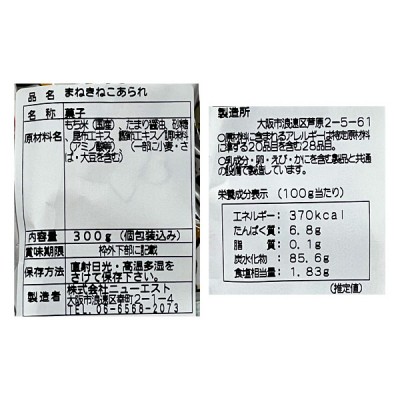 品名 まねきねこあられ
名称 菓子
原材料名 もち米(国産)、たまり醤油、砂糖
、昆布エキス、鰹節エキス/調味料
(アミノ酸等)(一部に小麦・さ
ば・大豆を含む)
内容量 300g(個包装込み)
賞味期限 枠外下部に記載
保存方法 直射日光・高温多湿を
さけて保存下さい。
製造者 株式会社ニューエスト
大阪市浪速区幸町2-1-4
TEL.06-6568-2073
製造所
大阪市浪速区芦原2-5-61
○原材料に含まれるアレルギーは特定原材料
に準ずる20品目を含む28品目。
○乳成分・卵・えび・かにを含む製品と共通
の設備で製造しています。
栄養成分表示(100g当たり)
エネルギー:370kcal
たんぱく質:6.8g
脂質:0.1g
炭水化物:85.6g
食塩相当量:1.83g
(推定値)